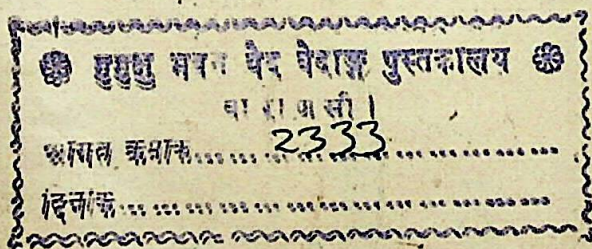 ❀ मुमुक्षु भवन वेद वेदाङ्ग पुस्तकालय ❀
वाराणसी।
आगत क्रमांक........2333........
दिनांक................